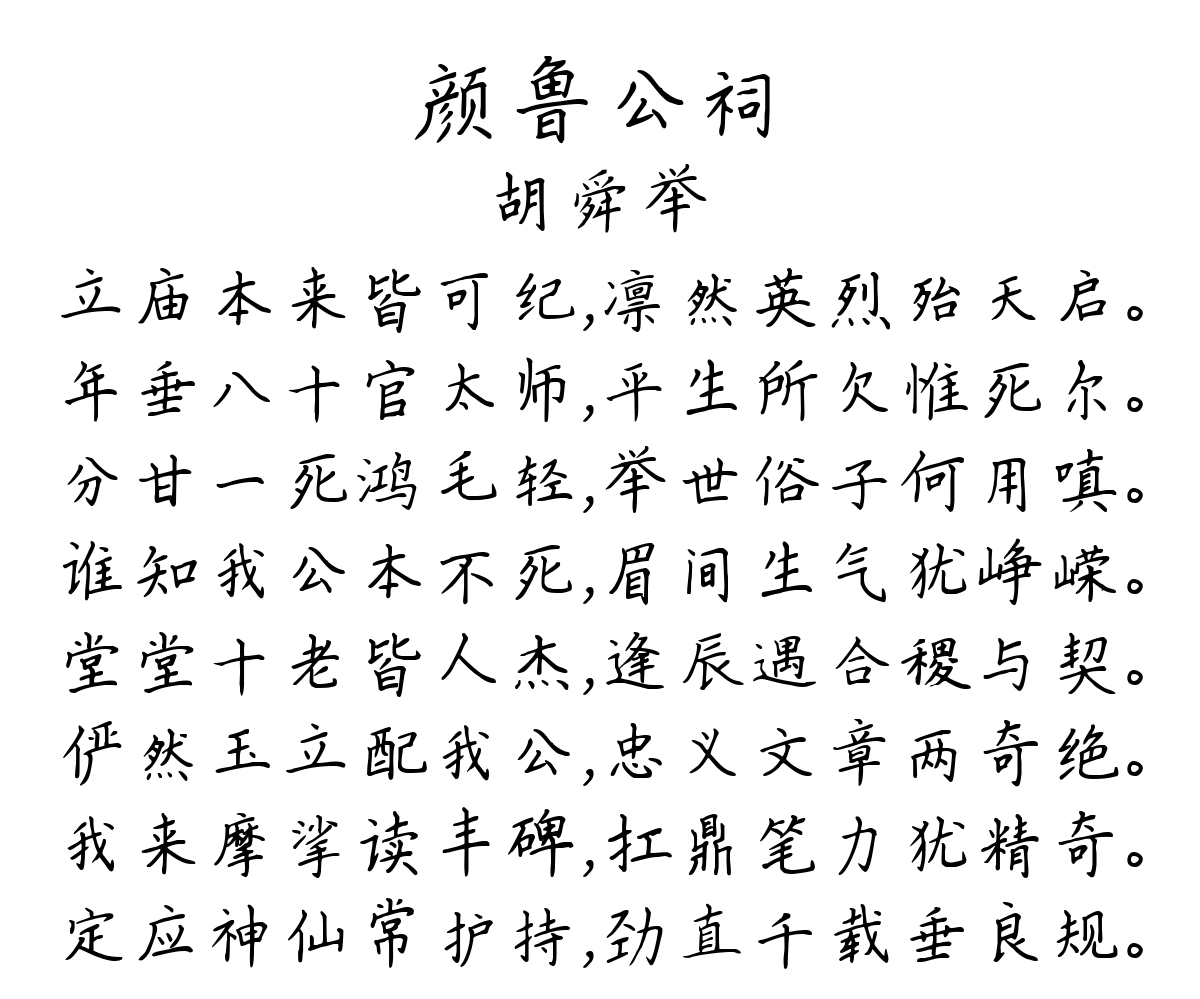 颜鲁公祠
胡舜举
立庙本来皆可纪,凛然英烈殆天启。
年垂八十官太师,平生所欠惟死尔。
分甘一死鸿毛轻,举世俗子何用嗔。
谁知我公本不死,眉间生气犹峥嵘。
堂堂十老皆人杰,逢辰遇合稷与契。
俨然玉立配我公,忠义文章两奇绝。
我来摩挲读丰碑,扛鼎笔力犹精奇。
定应神仙常护持,劲直千载垂良规。